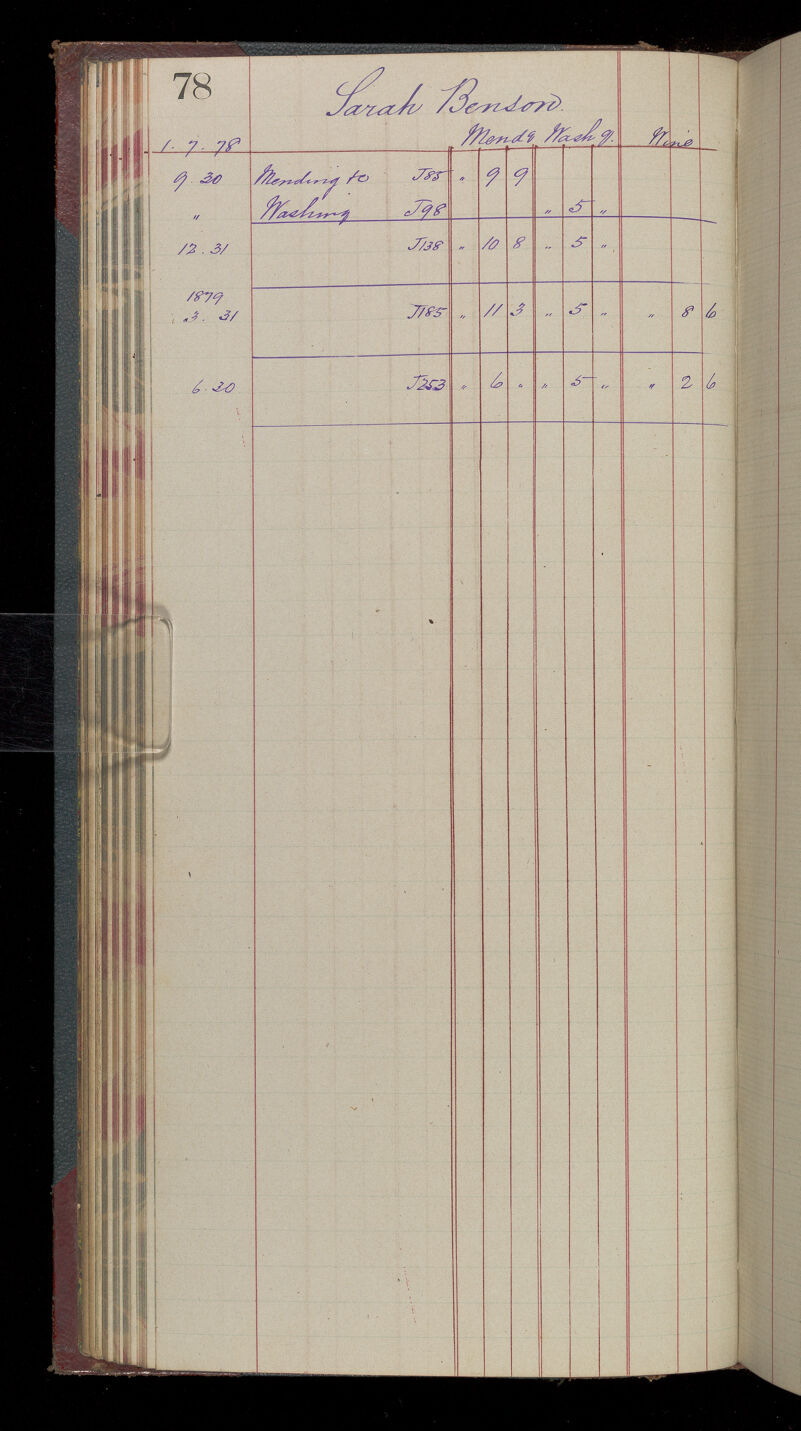 78
Sarah Benson.
1. 7. 78 Mendg. Washg. Wine
9. 30 Mending to J85 " 9 9
" Washing J98 " 5 "
12. 31 J138 " 10 8 " 5 "
1879
3. 31 J185 " 11 3 " 5 " " 8 6
6. 30 J253 " 6 " " 5 " " 2 6